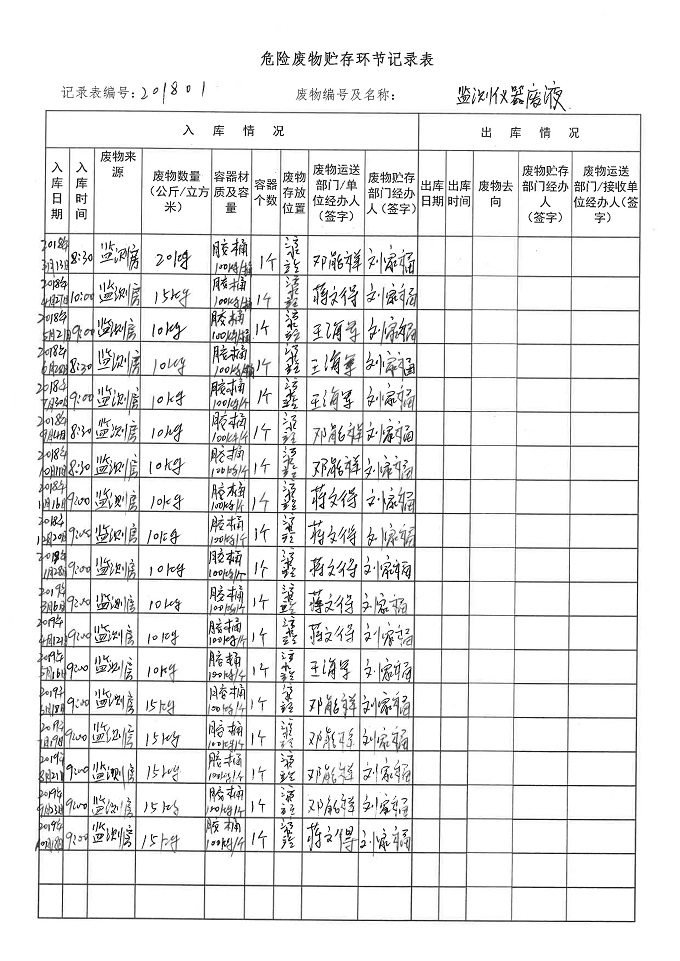 危险废物贮存环节记录表
记录表编号: 201801 废物编号及名称: 监测仪器废液
入 库 情 况 出 库 情 况
入库日期 入库时间 废物来源 废物数量（公斤/立方米） 容器材质及容量 容器个数 废物存放位置 废物运送部门/单位经办人（签字） 废物贮存部门经办人（签字） 出库日期 出库时间 废物去向 废物贮存部门经办人（签字） 废物运送部门/接收单位经办人（签字）
2018年3月13日 8:30 监测房 20kg 胶桶100kg/桶 1个 刘家福
2018年4月27日 10:00 监测房 15kg 胶桶100kg/个 1个 蒋文得 刘家福
2018年5月21日 9:00 监测房 10kg 胶桶100kg/桶 1个 王海军 刘家福
2018年6月 8:30 监测房 10kg 胶桶100kg/桶 1个 王海军 刘家福
2018年7月30日 9:00 监测房 10kg 胶桶100kg/个 1个 王海军 刘家福
2018年9月4日 8:30 监测房 10kg 胶桶100kg/个 1个 刘家福
2018年10月11日 8:30 监测房 10kg 胶桶100kg/个 1个 刘家福
2018年11月16日 9:00 监测房 10kg 胶桶100kg/个 1个 蒋文得 刘家福
2018年12月20日 9:00 监测房 10kg 胶桶100kg/个 1个 蒋文得 刘家福
1月28日 9:00 监测房 10kg 胶桶100kg/个 1个 蒋文得 刘家福
2019年3月6日 9:00 监测房 10kg 胶桶100kg/个 1个 蒋文得 刘家福
2019年4月12日 9:00 监测房 10kg 胶桶100kg/个 1个 蒋文得 刘家福
2019年5月16日 9:00 监测房 10kg 胶桶100kg/个 1个 王海军 刘家福
2019年6月18日 9:00 监测房 15kg 胶桶100kg/个 1个 刘家福
2019年7月19日 9:00 监测房 15kg 胶桶100kg/个 1个 刘家福
2019年8月21日 9:00 监测房 15kg 胶桶100kg/个 1个 刘家福
2019年9月23日 9:00 监测房 15kg 胶桶100kg/个 1个 刘家福
2019年10月18日 9:00 监测房 15kg 胶桶100kg/个 1个 蒋文得 刘家福